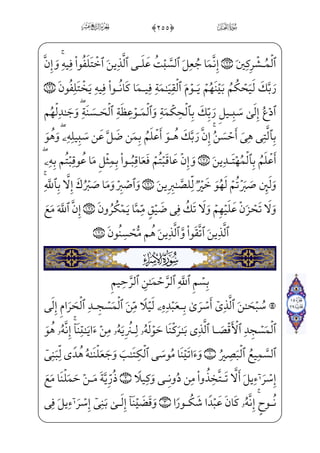 ٱلْمُشْرِكِينَ ۝ إِنَّمَا جُعِلَ ٱلسَّبْتُ عَلَى ٱلَّذِينَ ٱخْتَلَفُوا۟ فِيهِ ۚ وَإِنَّ
رَبَّكَ لَيَحْكُمُ بَيْنَهُمْ يَوْمَ ٱلْقِيَـٰمَةِ فِيمَا كَانُوا۟ فِيهِ يَخْتَلِفُونَ ۝
ٱدْعُ إِلَىٰ سَبِيلِ رَبِّكَ بِٱلْحِكْمَةِ وَٱلْمَوْعِظَةِ ٱلْحَسَنَةِ ۖ وَجَـٰدِلْهُم
بِٱلَّتِى هِىَ أَحْسَنُ ۚ إِنَّ رَبَّكَ هُوَ أَعْلَمُ بِمَن ضَلَّ عَن سَبِيلِهِۦ ۖ وَهُوَ
أَعْلَمُ بِٱلْمُهْتَدِينَ ۝ وَإِنْ عَاقَبْتُمْ فَعَاقِبُوا۟ بِمِثْلِ مَا عُوقِبْتُم بِهِۦ ۖ
وَلَئِن صَبَرْتُمْ لَهُوَ خَيْرٌ لِّلصَّـٰبِرِينَ ۝ وَٱصْبِرْ وَمَا صَبْرُكَ إِلَّا بِٱللَّهِ ۚ
وَلَا تَحْزَنْ عَلَيْهِمْ وَلَا تَكُ فِى ضَيْقٍ مِّمَّا يَمْكُرُونَ ۝ إِنَّ ٱللَّهَ مَعَ
ٱلَّذِينَ ٱتَّقَوا۟ وَّٱلَّذِينَ هُم مُّحْسِنُونَ ۝
سُورَةُ الإِسْرَاءِ
بِسْمِ ٱللَّهِ ٱلرَّحْمَـٰنِ ٱلرَّحِيمِ
۞ سُبْحَـٰنَ ٱلَّذِىٓ أَسْرَىٰ بِعَبْدِهِۦ لَيْلًا مِّنَ ٱلْمَسْجِدِ ٱلْحَرَامِ إِلَى
ٱلْمَسْجِدِ ٱلْأَقْصَا ٱلَّذِى بَـٰرَكْنَا حَوْلَهُۥ لِنُرِيَهُۥ مِنْ ءَايَـٰتِنَآ ۚ إِنَّهُۥ هُوَ
ٱلسَّمِيعُ ٱلْبَصِيرُ ۝ وَءَاتَيْنَا مُوسَى ٱلْكِتَـٰبَ وَجَعَلْنَـٰهُ هُدًى لِّبَنِىٓ
إِسْرَٰٓءِيلَ أَلَّا تَتَّخِذُوا۟ مِن دُونِى وَكِيلًا ۝ ذُرِّيَّةَ مَنْ حَمَلْنَا مَعَ
نُوحٍ ۚ إِنَّهُۥ كَانَ عَبْدًا شَكُورًا ۝ وَقَضَيْنَآ إِلَىٰ بَنِىٓ إِسْرَٰٓءِيلَ فِى